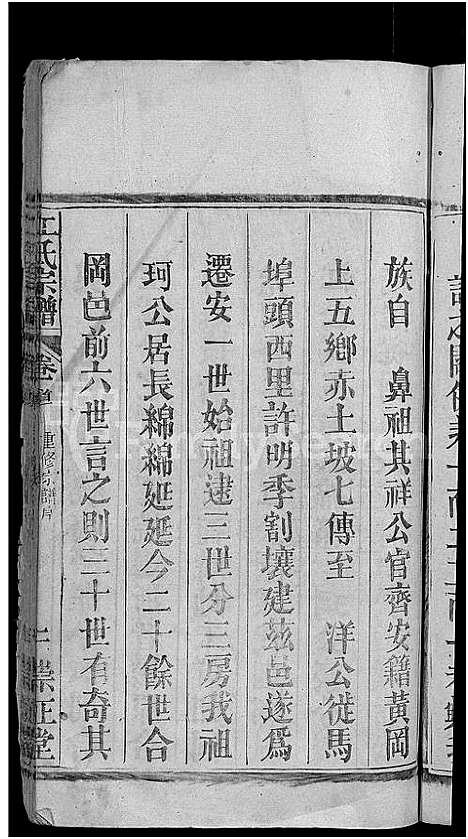 族自 鼻祖其祥公官齊安籍黃岡
上五鄉赤土坡七傳至 洋公徙馬
埠頭西里許明季割壤建茲邑遂爲
遷安一世始祖逮三世分三房我祖
珂公居長綿綿延延今二十餘世合
岡邑前六世言之則三十世有奇其
江氏宗譜 卷首 重修宗譜序 二 崇正堂